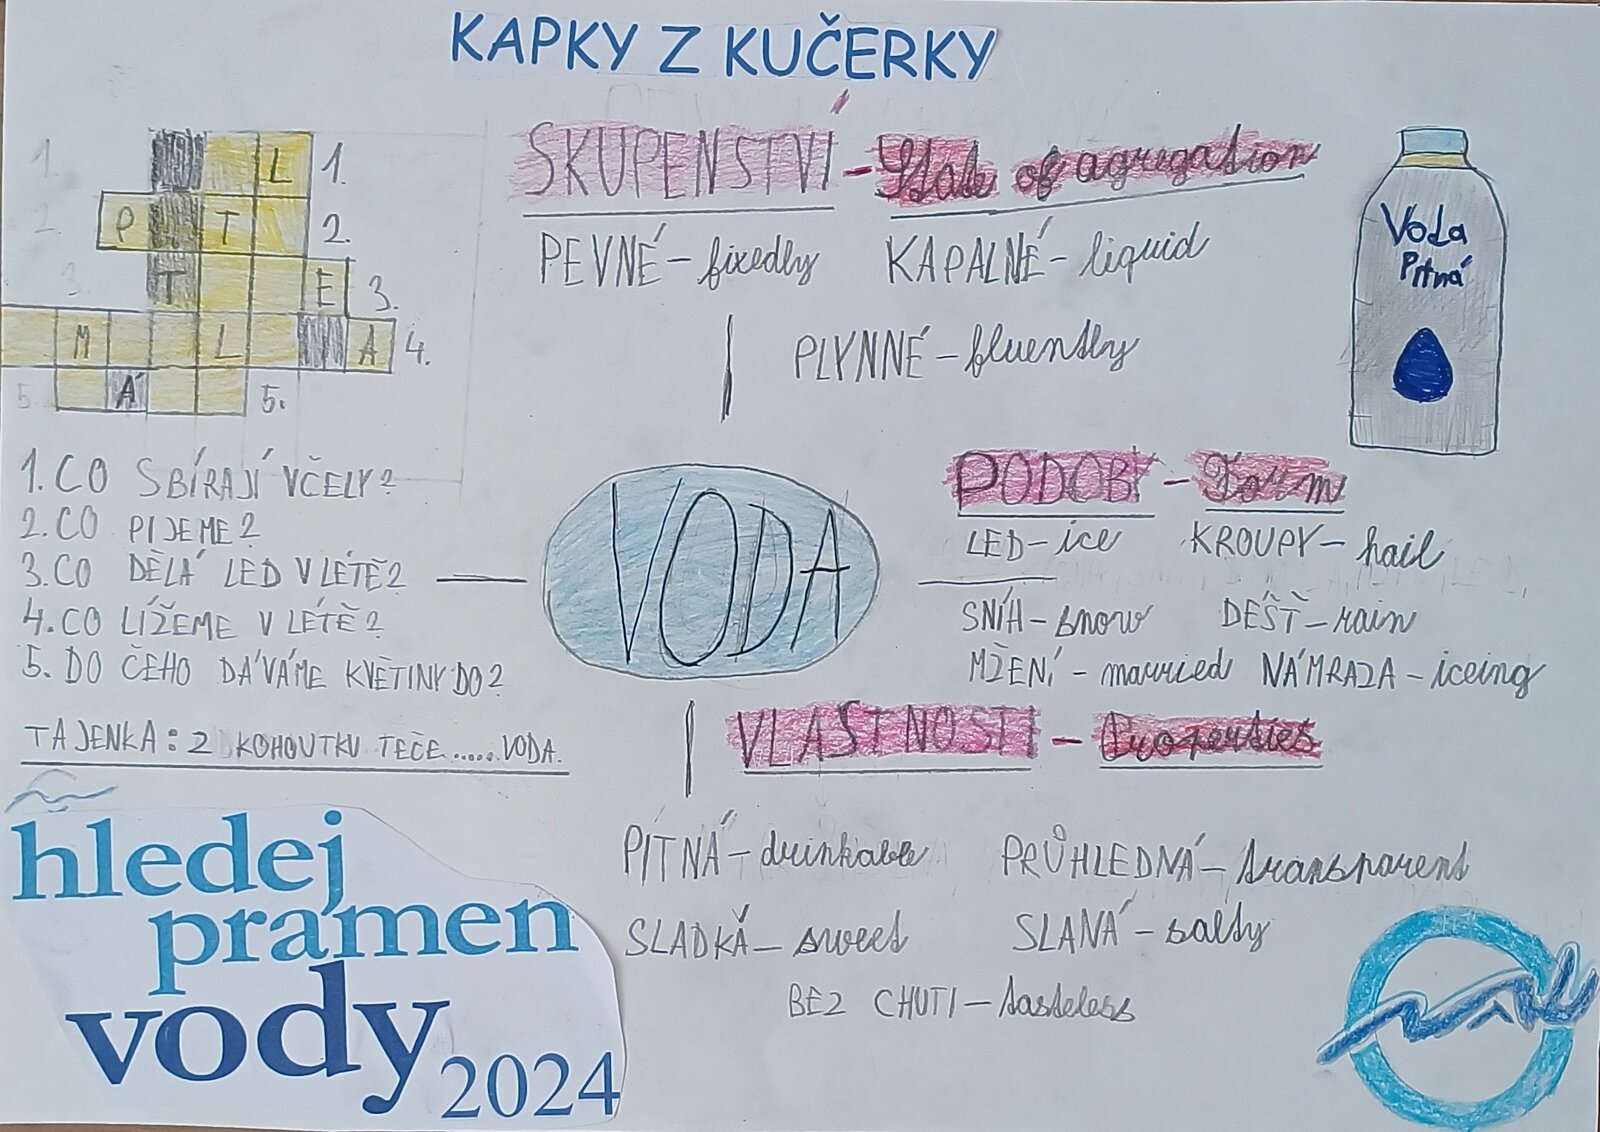 KAPKY Z KUČERKY
1. L 1.
2. P T 2.
3. T E 3.
M L A 4.
5. Á 5.
1. CO SBÍRAJÍ VČELY?
2. CO PIJEME?
3. CO DĚLÁ LED V LÉTĚ?
4. CO LÍŽEME V LÉTĚ?
5. DO ČEHO DÁVÁME KVĚTINY DO?
TAJENKA: Z KOHOUTKU TEČE ..... VODA.
SKUPENSTVÍ - State of agregation
PEVNÉ - fixedly KAPALNÉ - liquid
PLYNNÉ - fluently
Voda
Pitná
VODA
PODOBY - Form
LED - ice KROUPY - hail
SNÍH - snow DÉŠŤ - rain
MŽENÍ - married NÁMRAZA - iceing
VLASTNOSTI - Properties
PITNÁ - drinkable PRŮHLEDNÁ - transparent
SLADKÁ - sweet SLANÁ - salty
BEZ CHUTI - tasteless
hledej
pramen
vody
2024